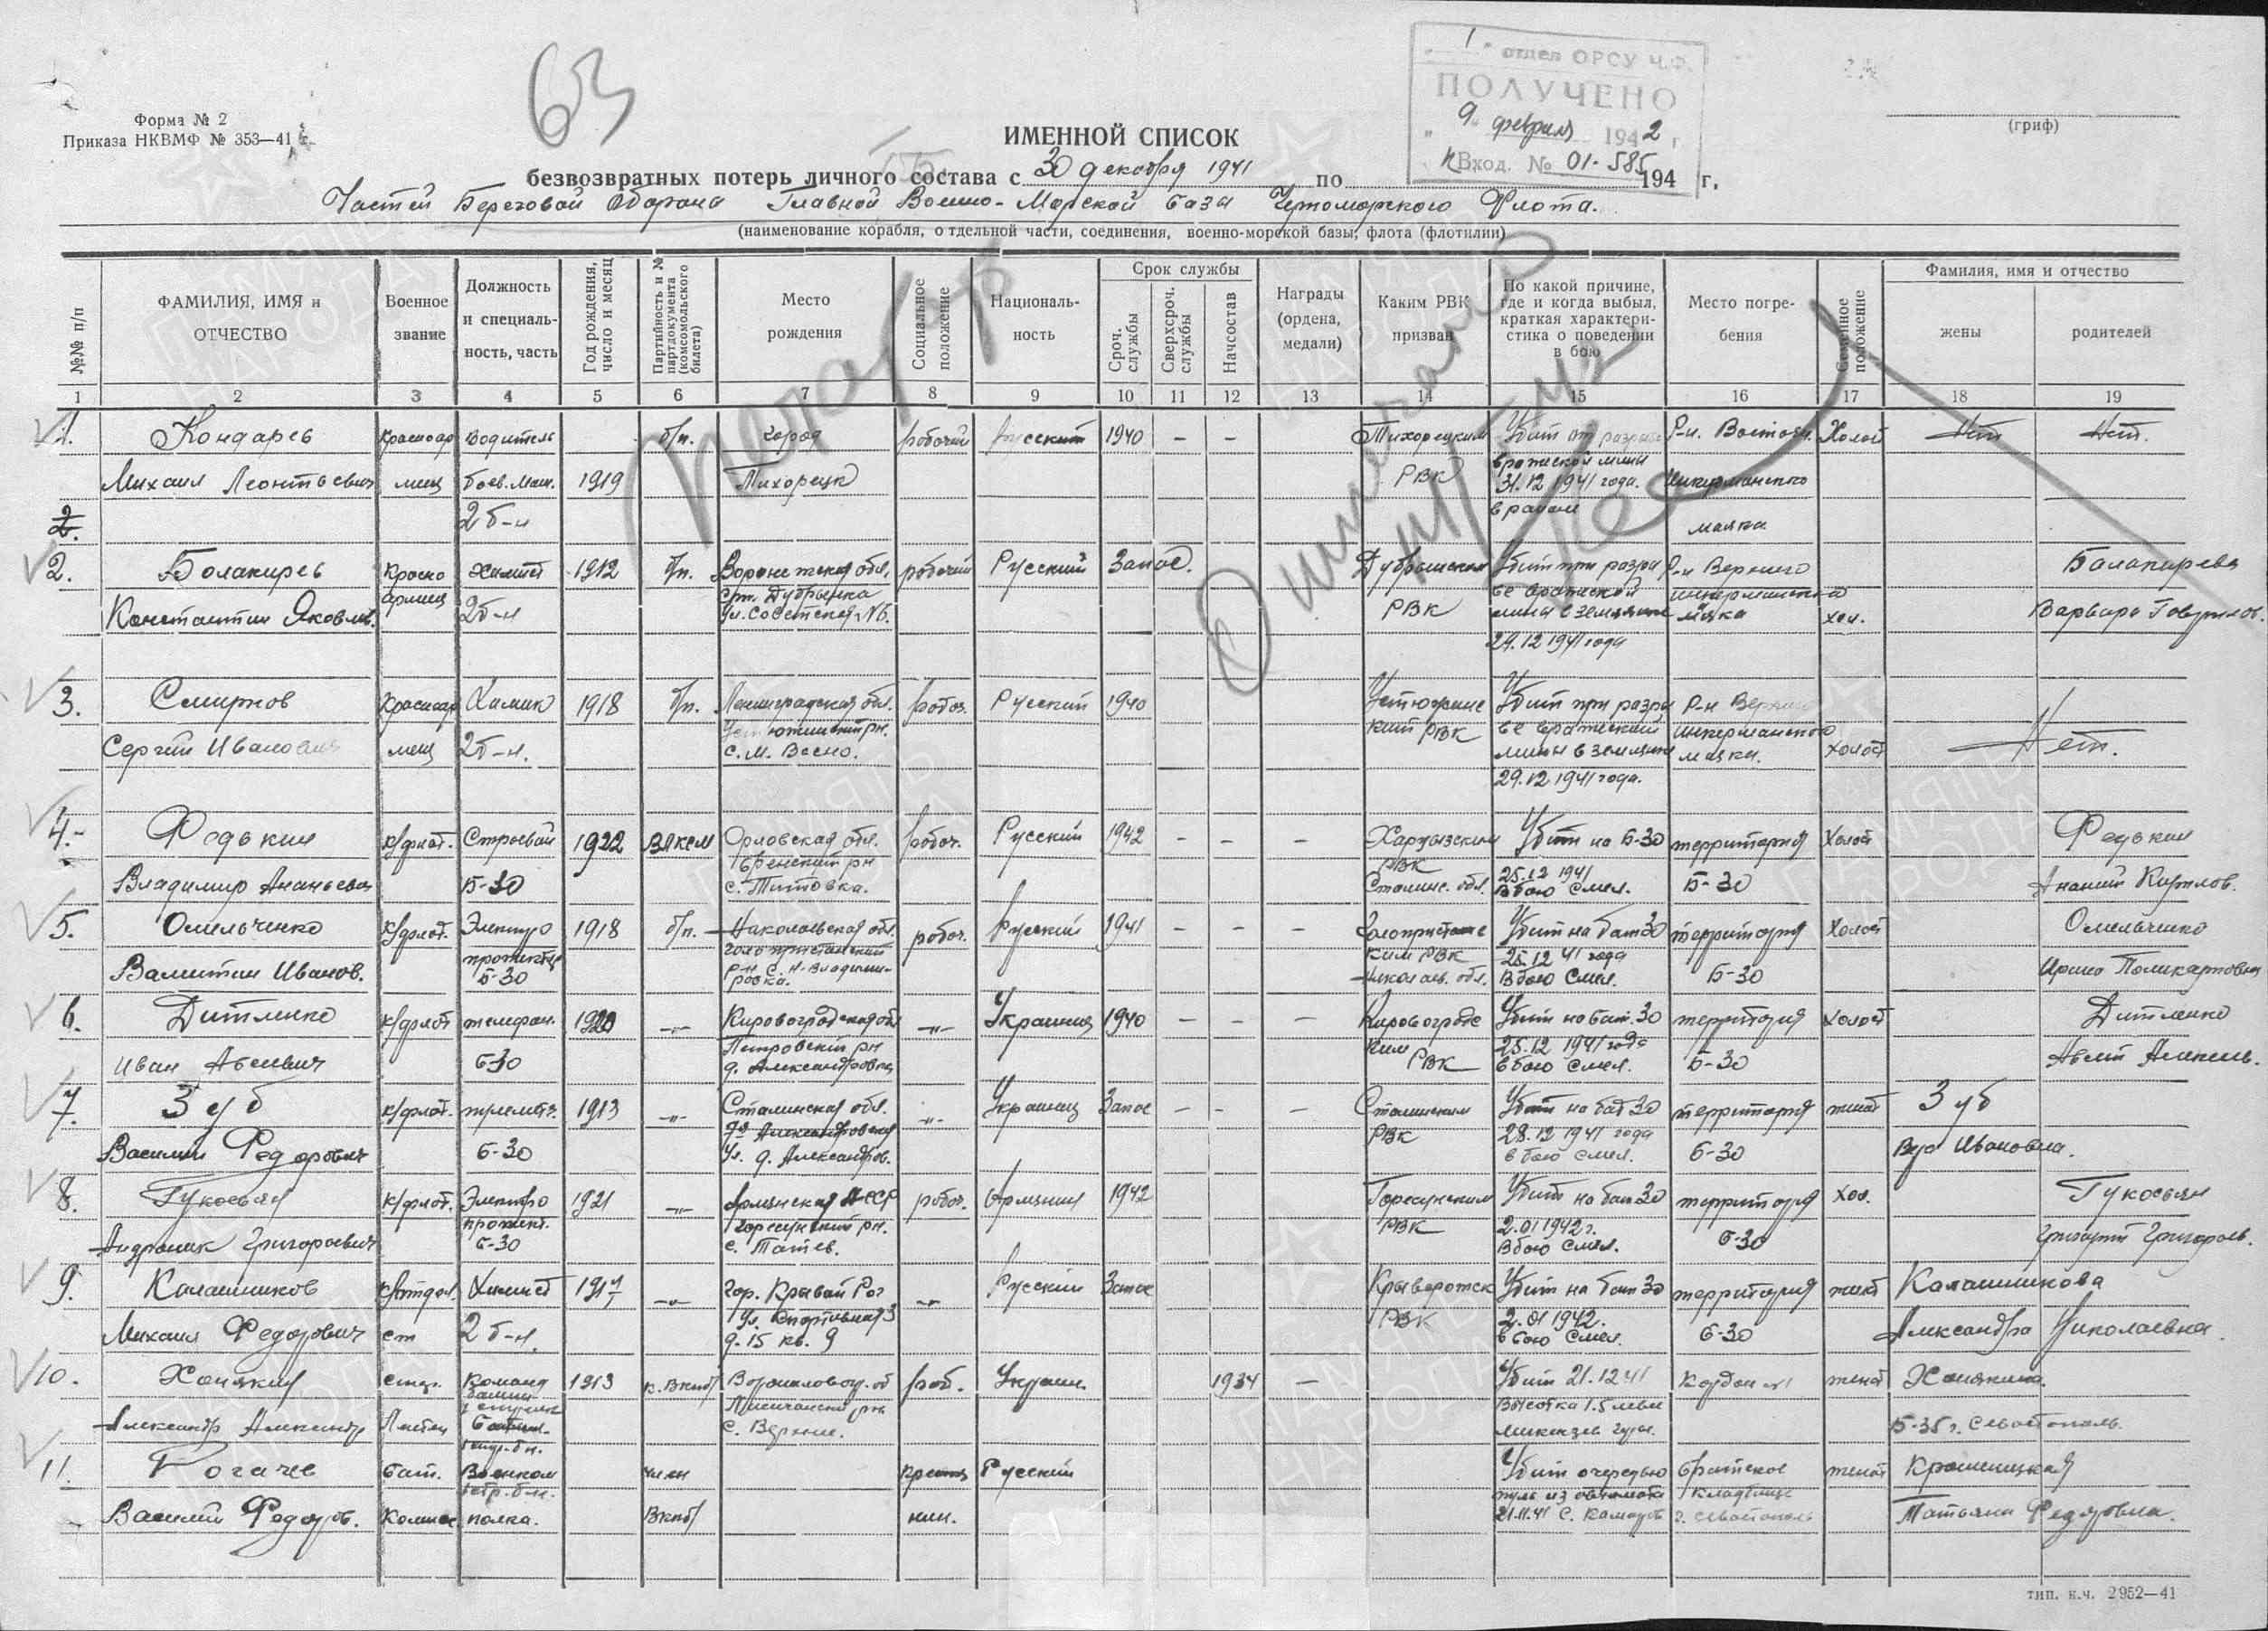 63
1 отдел ОРСУ Ч.Ф.
ПОЛУЧЕНО
9 февраля 1942 г
Вход. № 01-585
Форма № 2
Приказа НКВМФ № 353—41 г.
(гриф)
ИМЕННОЙ СПИСОК
безвозвратных потерь личного состава с 30 декабря 1941 по 194 г.
Частей Береговой Обороны Главной Военно-Морской База Черноморского Флота.
(наименование корабля, отдельной части, соединения, военно-морской базы, флота (флотилии)
№№ п/п
ФАМИЛИЯ, ИМЯ и ОТЧЕСТВО
Военное звание
Должность и специальность, часть
Год рождения, число и месяц
Партийность и № партдокумента (комсомольского билета)
Место рождения
Социальное положение
Националь-ность
Срок службы
Сроч. службы
Сверхсроч. службы
Начсостав
Награды (ордена, медали)
Каким РВК призван
По какой причине, где и когда выбыл, краткая характери-стика о поведении в бою
Место погре-бения
Семейное положение
Фамилия, имя и отчество
жены
родителей
1 2 3 4 5 6 7 8 9 10 11 12 13 14 15 16 17 18 19
1. Кондарев Красноар водитель б/п. город рабочий Русский 1940 – – Тихорецким Убит от разрыва Р-н. Восточн. Холост Нет Нет.
Михаил Леонтьевич меец боев. маш. 1919 Тихорецк РВК вражеской мины 31.12 1941 года. Инкерманского
2. 2 б-н в районе маяка
2. Болакирев Красно армеец Химист 1912 б/п. Воронежская обл. рабочий Русский Запас. РВК Убит при разры Р-н Верхнего Балакирева
Константин Яковлев. 2б-н Ул. Советская N6. ве вражеской мины в землянке инкерманского маяка хол. Варвара Гаврилов.
29.12 1941 года
3. Смирнов Красноар Химик 1918 б/п. Ленинградская обл. рабоч. Русский 1940 Убит при разры Р-н Верхнего
Сергей Иванович меец 2б-н. с. М. Восно. кий РВК ве вражеский мины в землянке инкерманского маяка. холост Нет.
29.12 1941 года.
4. Федькин к/флот. Строевой 1922 ВЛКСМ Орловская обл. рабоч. Русский 1942 – – – Харцызским Убит на Б-30 территория Холост Федькин
Владимир Ананьевич Б-30 с. Титовка. РВК Сталинс. обл. 25.12 1941 В бою смел. Б-30 Ананий Кирилов.
5. Омельченко к/флот. Электро 1918 б/п. Николаевская обл. рабоч. Русский 1941 – – – Убит на бат 30 территория Холост Омельченко
Валентин Иванов. Б-30 р-н с. Н-Владими-ровка. ким РВК Николаев. обл. 25.12 41 года В бою смел. Б-30 Ирина Поликарповна
6. Дитленко к/флот телефон. 1920 -"- Кировоградская обл -"- Украинец 1940 – – – Кировоградс Убит на бат. 30 территория холост Дитленко
Иван Авсиевич Б-30 Петровский рн д. Александровка ким РВК 25.12 1941 года в бою смел. Б-30
7. Зуб к/флот. пулемет. 1913 -"- Сталинская обл. -"- Украинец Запас – – – Сталинским Убит на бат 30 территория женат Зуб
Василий Федорович Б-30 РВК 28.12 1941 года в бою смел. Б-30 Вера Ивановна.
8. Гукосьян к/флот. Электро 1921 -"- Армянская ССР рабоч. Армянин 1942 Горисунским Убит на бат 30 территория хол. Гукосьян
Андроник Григорьевич Б-30 с. Татев. РВК 2.01 1942 г. В бою смел. Б-30 Григорий Григорьев.
9. Калашников Химист 1917 -"- гор. Кривой Рог -"- Русский Запас Убит на бат 30 территория женат Калашникова
Михаил Федорович 2 б-н. Ул. Спортивная 3 д. 15 кв. 9 РВК 2.01 1942. в бою смел. Б-30 Александра Николаевна.
10. Хонякин Команд 1913 к. ВКП/б/ Ворошиловогр. об раб. Украин. 1934 – Убит 21.12 41 Кордон N1 женат Хонякина.
Александр Александр Лейтен с. Верхние. Высотка 1.5 левее Мекензев. горы. Б-35 г. Севастополь.
11. Богачев бат. Военком член крестья Русский Убит очередью братское женат Крашеницкая
Василий Федоров. Комисс полка. ВКП/б/ нин. пуль из автомата 21.11.41 с. Камары кладбище г. Севастополь Татьяна Федоровна.
тип. н.ч. 2952—41